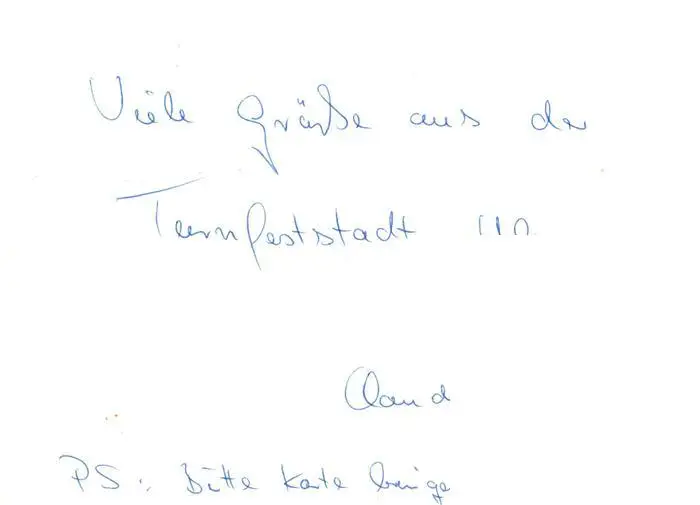 Viele Grüße aus der
Turnfeststadt
PS: Bitte Karte